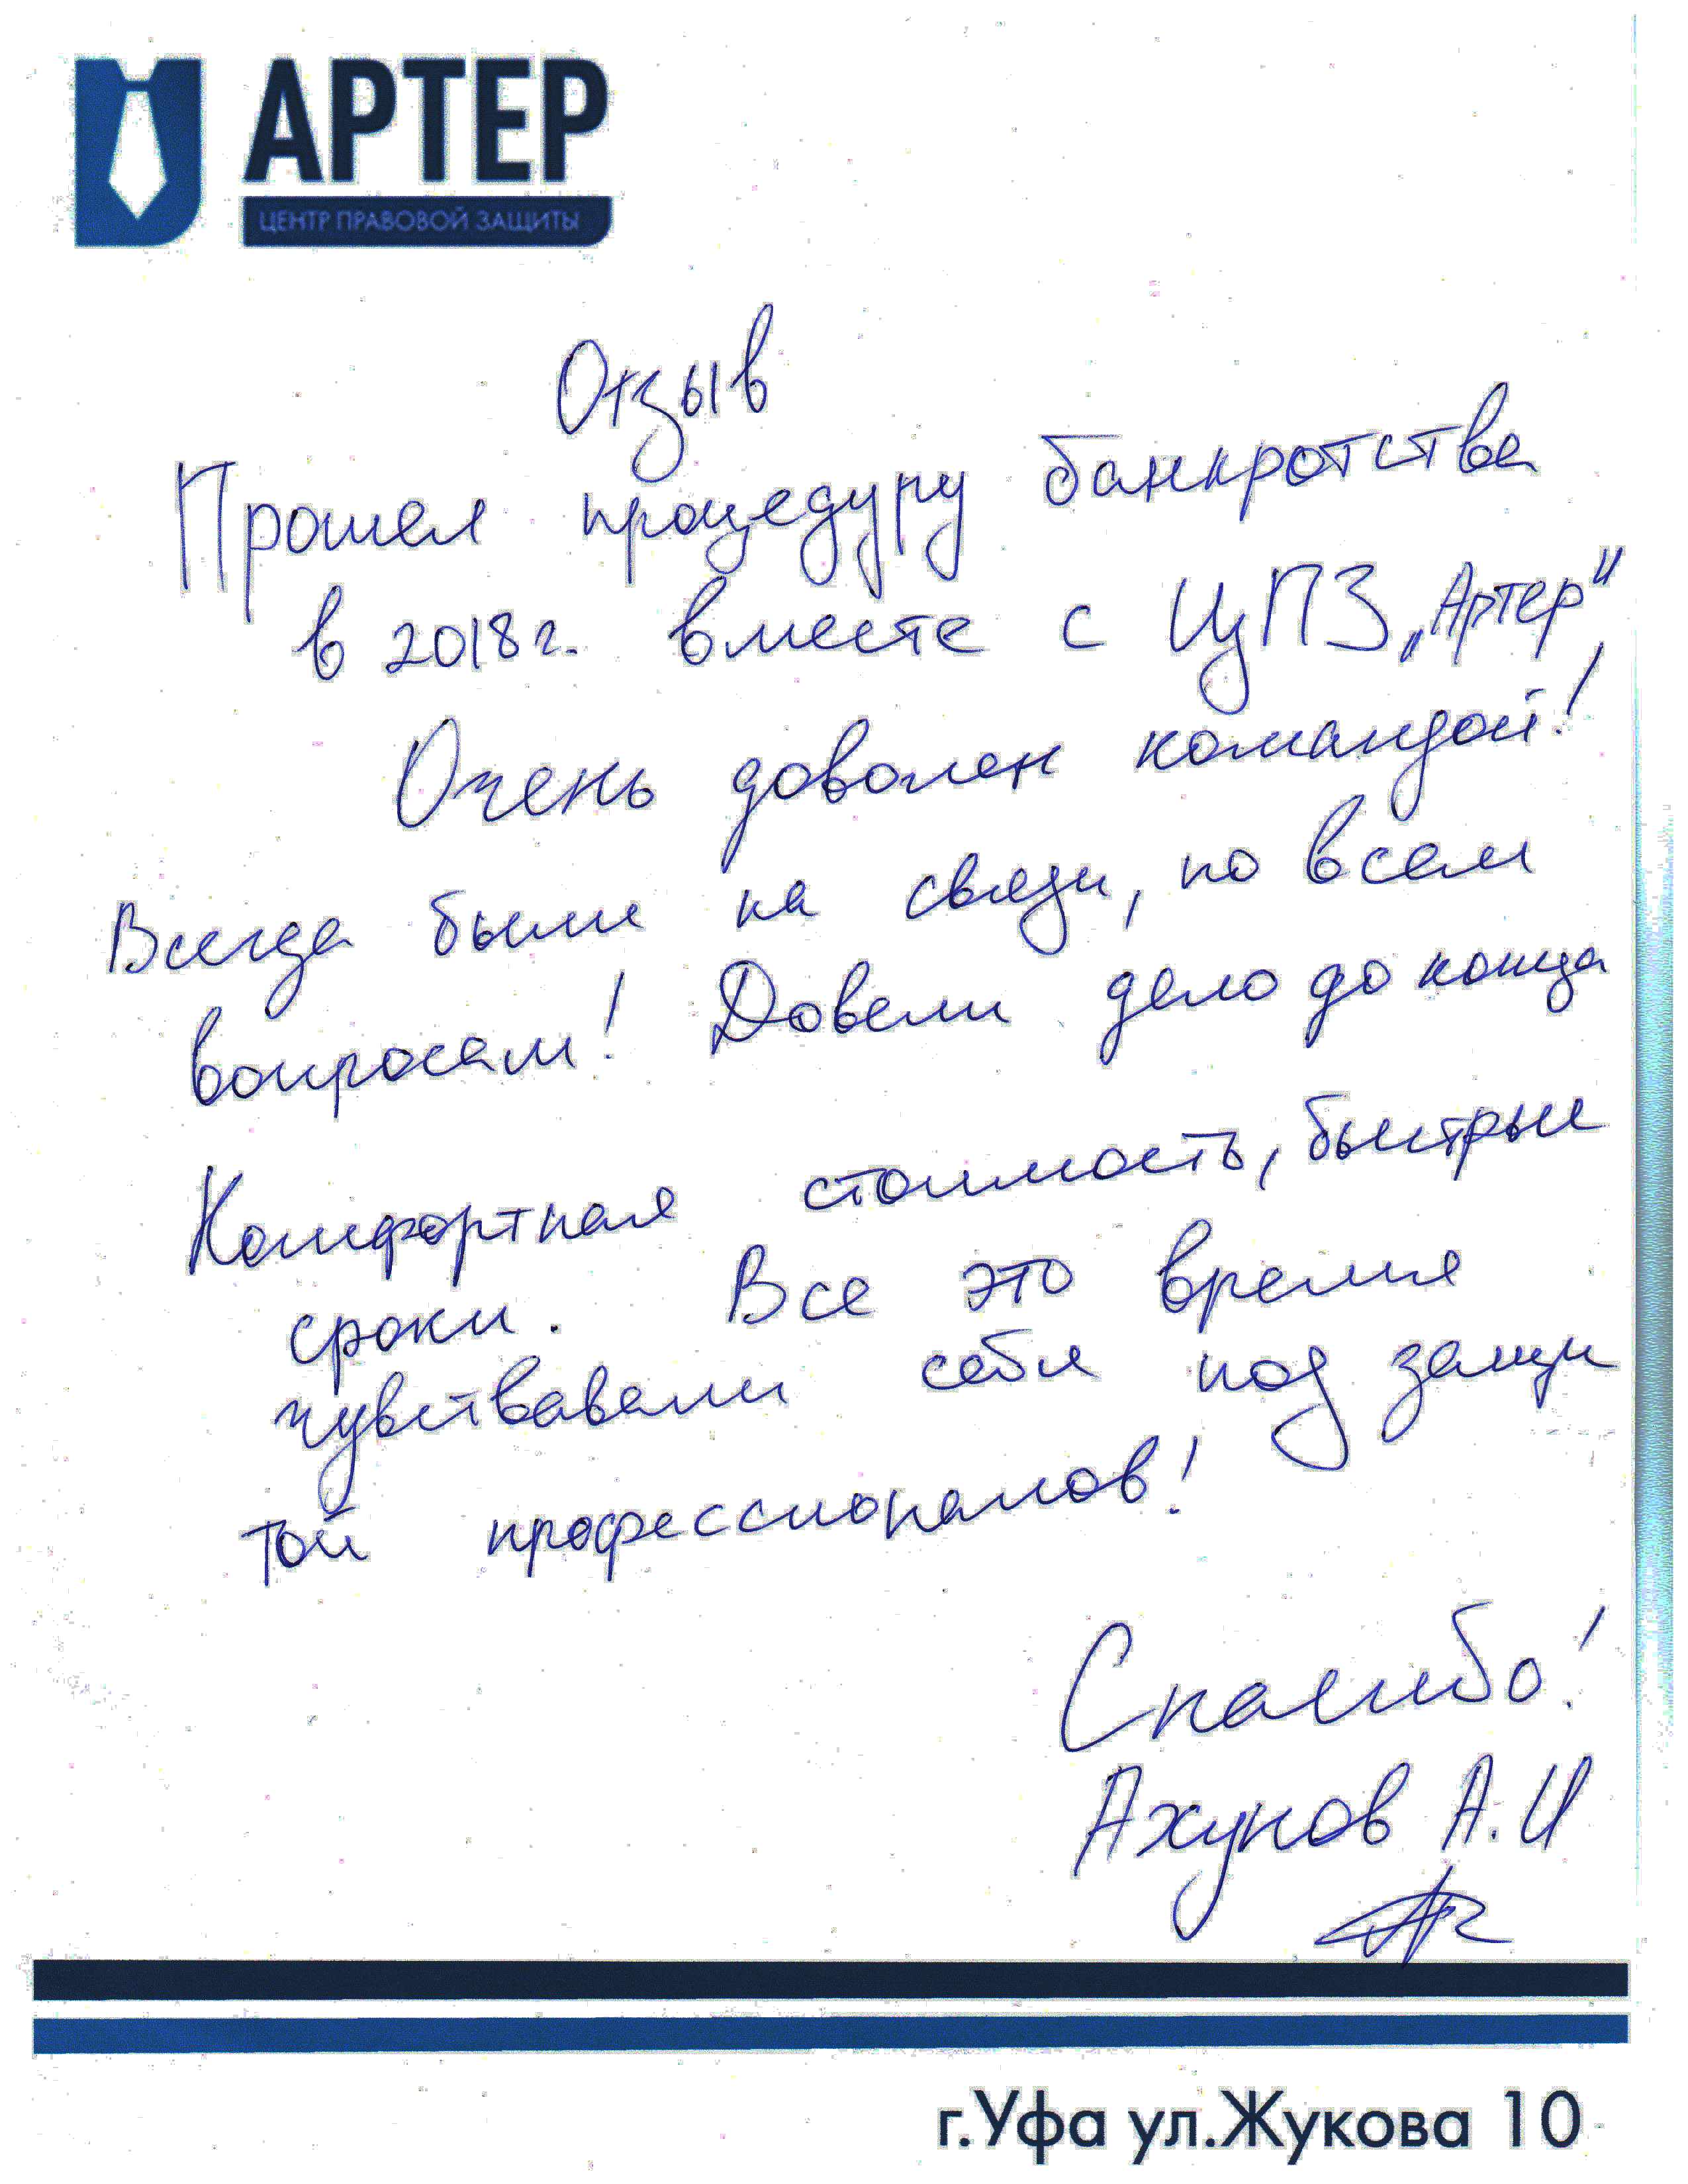 АРТЕР
ЦЕНТР ПРАВОВОЙ ЗАЩИТЫ
Отзыв
Прошел процедуру банкротства
в 2018г. вместе с ЦПЗ „Артер"
Очень доволен командой!
Всегда были на связи, по всем
вопросам! Довели дело до конца
Комфортная стоимость, быстрые
сроки. Все это время
чувствавали себя под защи
той профессионалов!
Спасибо!
Ахунов А.И
г.Уфа ул.Жукова 10